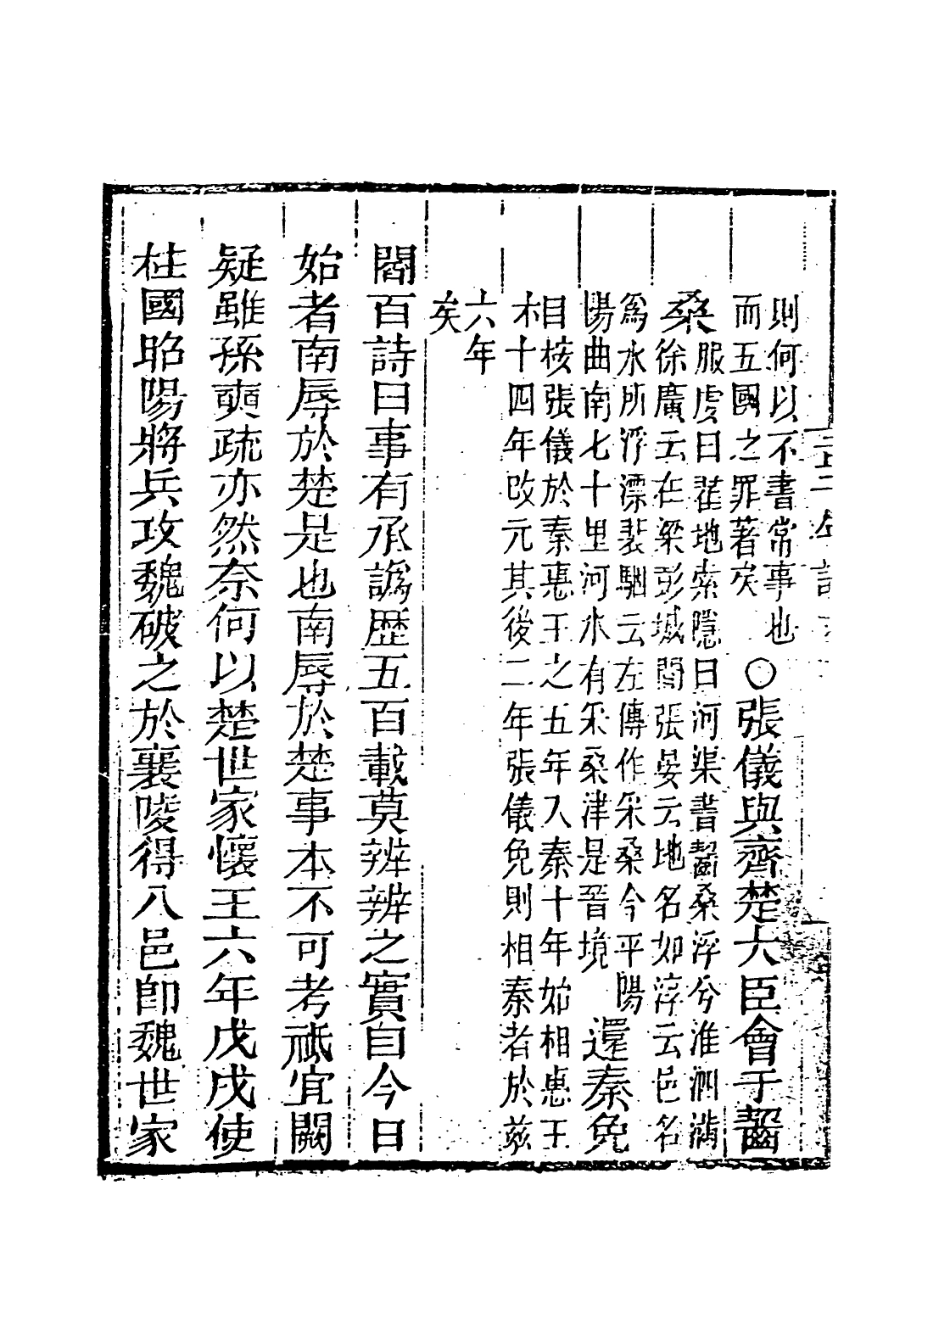 則何以不書常事也
而五國之罪著矣
○張儀與齊楚大臣會于齧
桑
服虔曰翟地索隱曰河渠書齧桑浮兮淮泗滿
徐廣云在梁彭城間張晏云地名如淳云邑名
爲水所浮漂裴駰云左傳作采桑今平陽
陽曲南七十里河水有采桑津是晉境
還秦免
相
核張儀於秦惠王之五年入秦十年始相惠王
十四年改元其後二年張儀免則相秦者於玆
六年
矣
閻百詩曰事有承譌歴五百載莫辨辨之實自今日
始者南辱於楚是也南辱於楚事本不可考祇宜闕
疑雖孫奭疏亦然奈何以楚世家懷王六年戊戌使
柱國昭陽將兵攻魏破之於襄陵得八邑卽魏世家